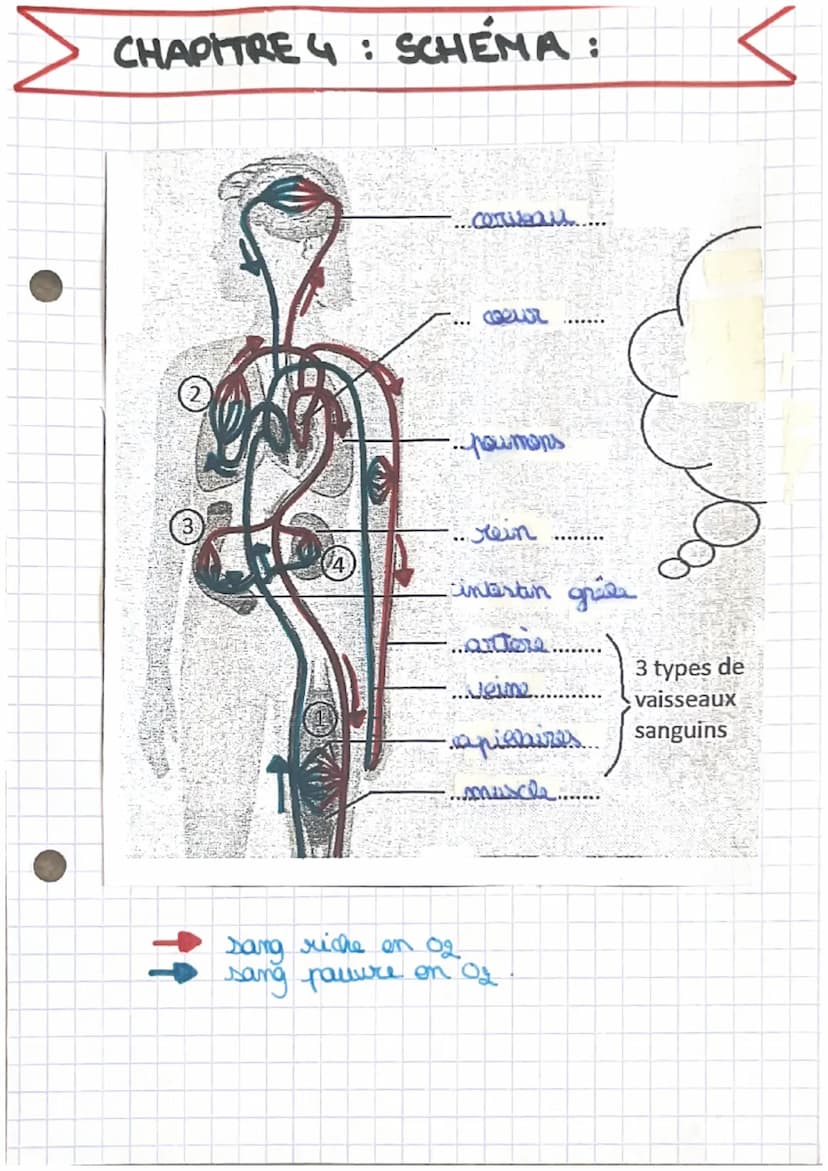 CHAPITRE 4 : SCHÉMA :
...cerveau.....
... cœur .......
...poumons
.. rein ........
intestin grêle
...artère........
...veine...........
capillaires...
...muscle.......
3 types de
vaisseaux
sanguins
2
3
4
1
sang riche en O2
sang pauvre en O2.